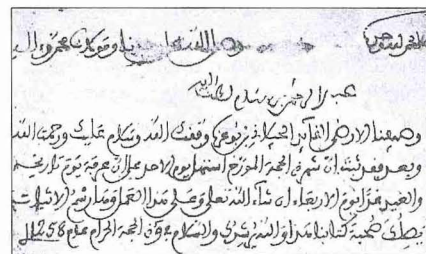 الحمد لله وحده وصلى الله على سيدنا ومولانا محمد وآله
عبد الرحمن بن الله
وصيفنا الارضى القائد بن بوعزة وفقك الله وسلام عليك ورحمت الله
وبعد فقد ثبت ان شهر ذي الحجة المؤرخ استهل يوم الاحد على ان عرفة يوم تاريخه
والعيد غدا يوم الاربعاء ان شاء الله تعلى وعلى هذا العمل وها رسم الاثبات
صحبة كتابنا هذا والله يرشدك والسلام في ذي الحجة الحرام عام 1258